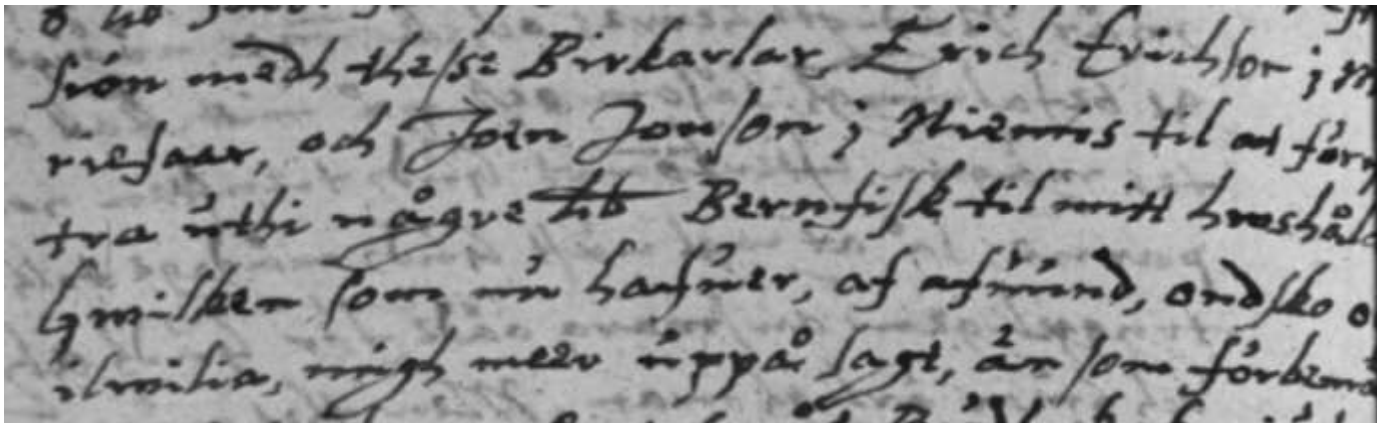 siön medh thesse Birkarlar, Erich Erichson i M
riesaar, och Joen Jonson i Niemis til at förm
tra uthi någre lib Bernfisk til mitt hwshåld
hwilken som nu hafuer, af afuund, ondsko o
ilwilia, migh meer uppå sagt, än som förbem